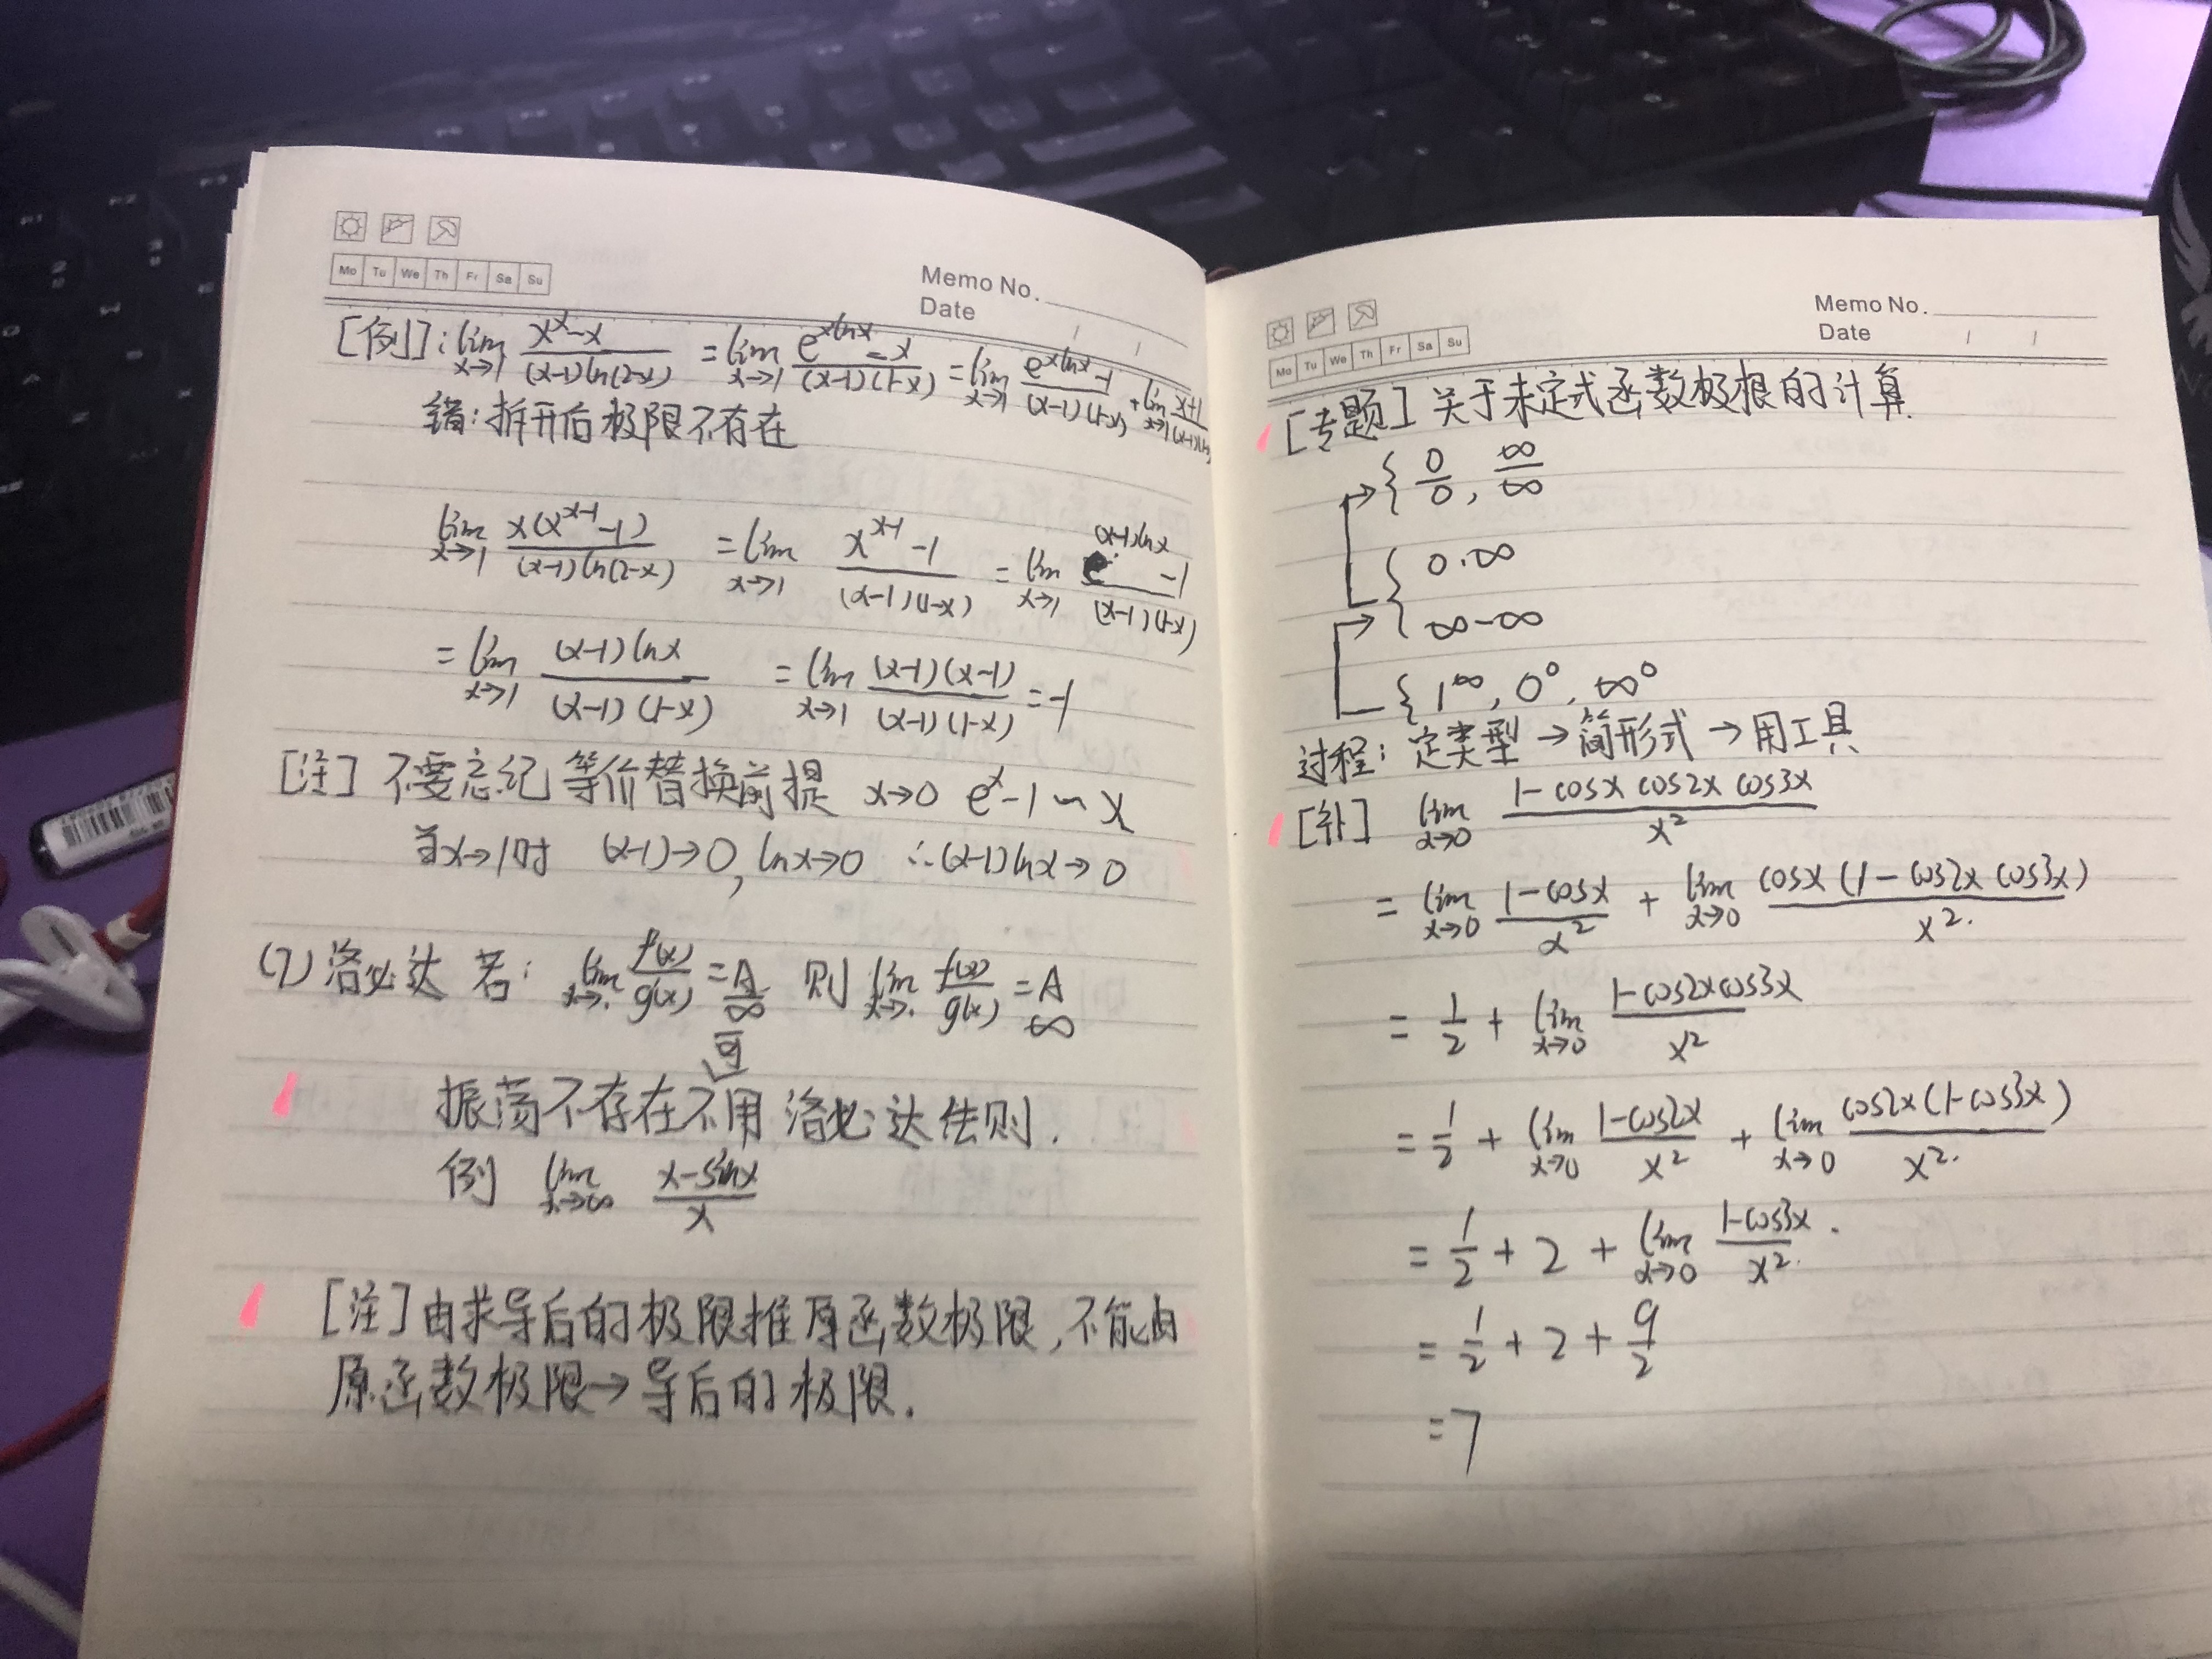 Mo Tu We Th Fr Sa Su
Memo No.
Date / /
[例]: lim x→1 (x^x-x)/((x-1)ln(2-x)) = lim x→1 (e^{xlnx}-x)/((x-1)(1-x)) = lim x→1 (e^{xlnx}-1)/((x-1)(1-x)) + lim x→1 (x+1)/((x-1)(1-x)
错:拆开后极限不存在
lim x→1 x(x^{x-1}-1)/((x-1)ln(2-x)) = lim x→1 (x^{x-1}-1)/((x-1)(1-x)) = lim x→1 (e^{(x-1)lnx}-1)/((x-1)(1-x))
= lim x→1 ((x-1)lnx)/((x-1)(1-x)) = lim x→1 ((x-1)(x-1))/((x-1)(1-x)) = -1
[注] 不要忘记等价替换前提 x→0 e^x-1~x
当x→1时 (x-1)→0, lnx→0 ∴(x-1)lnx→0
(7)洛必达 若: lim x→· f'(x)/g'(x) = A ∞ 则 lim x→· f(x)/g(x) = A ∞
可
振荡不存在不用洛必达法则.
例 lim x→∞ (x-sinx)/x
[注]由求导后的极限推原函数极限,不能由
原函数极限→导后的极限.
Mo Tu We Th Fr Sa Su
Memo No.
Date / /
[专题]关于未定式函数极限的计算
{ 0/0, ∞/∞
{ 0·∞
∞-∞
{ 1^∞, 0^0, ∞^0
过程: 定类型→简形式→用工具
[补] lim x→0 (1-cosx cos2x cos3x)/x²
= lim x→0 (1-cosx)/x² + lim x→0 (cosx(1-cos2x cos3x))/x²
= 1/2 + lim x→0 (1-cos2xcos3x)/x²
= 1/2 + lim x→0 (1-cos2x)/x² + lim x→0 (cos2x(1-cos3x))/x²
= 1/2 + 2 + lim x→0 (1-cos3x)/x².
= 1/2 + 2 + 9/2
= 7